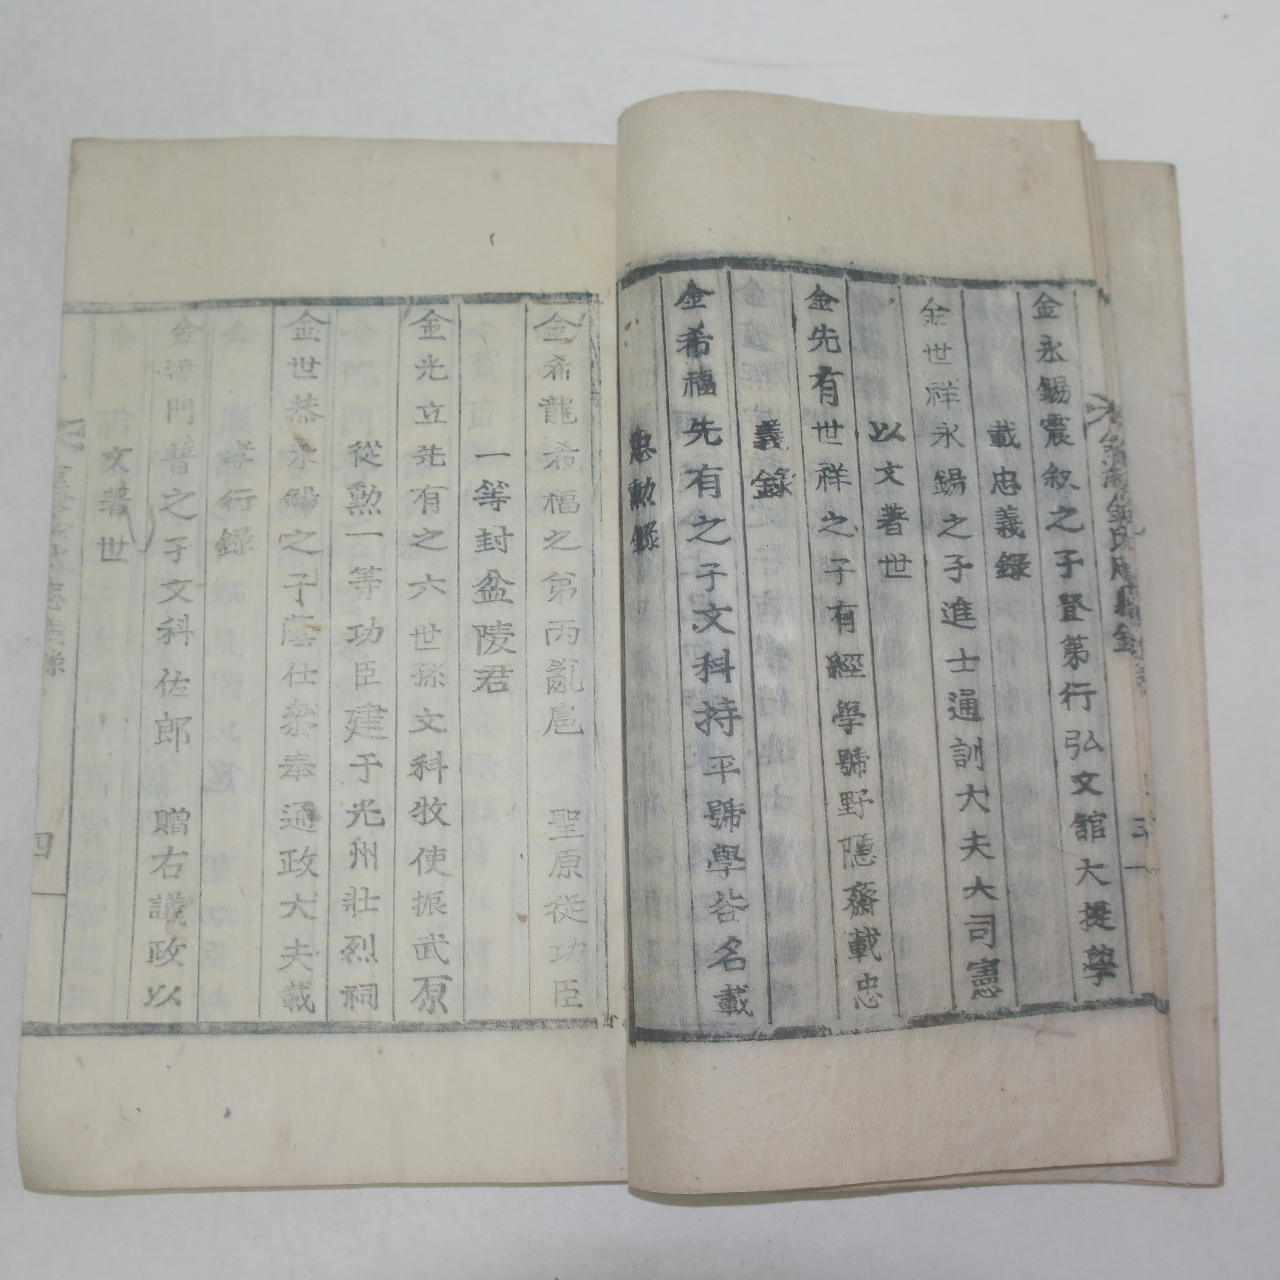 金永錫震叙之子登第行弘文舘大提學
載忠義録
金世祥永錫之子進士通訓大夫大司憲
以文著世
金先有世祥之子有經學號野隱齋載忠
義錄
金希福先有之子文科持平號學 名載
忠勳錄
三
金希龍希福之第丙亂扈 聖原從功臣
一等封盆陵君
金光立先有之六世孫文科牧使振武原
從勲一等功臣建于光州壯烈祠
金世恭永錫之子蔭仕叅奉通政大夫載
孝行録
金 門普之子文科佐郎 贈右議政以
文著世
四